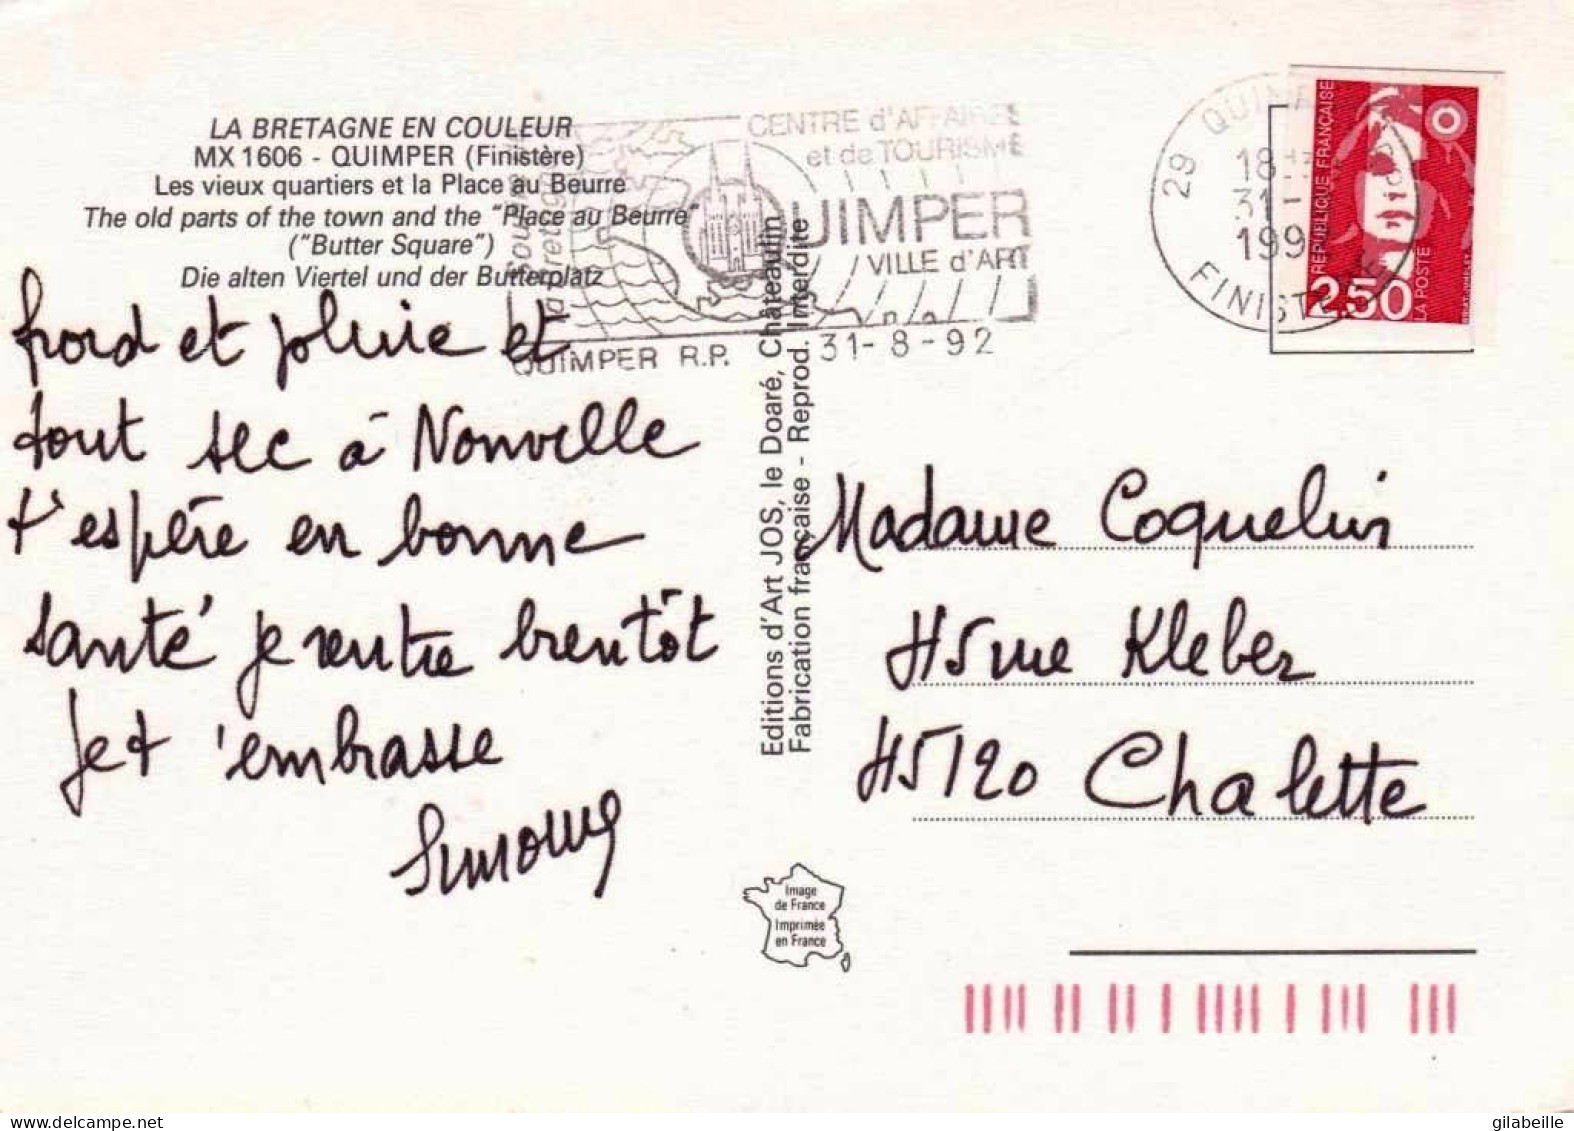 LA BRETAGNE EN COULEUR
MX 1606 - QUIMPER (Finistère)
Les vieux quartiers et la Place au Beurre
The old parts of the town and the "Place au Beurre"
("Butter Square")
Die alten Viertel und der Butterplatz
froid et pluie et
tout sec à Nonville
t'espère en bonne
santé je rentre bientôt
Je t'embrasse
Simone
CENTRE d'AFFAIRES
et de TOURISME
QUIMPER
VILLE d'ART
QUIMPER R.P. 31-8-92
29 QUIMPER
18H
31-
199
FINISTE
REPUBLIQUE FRANÇAISE
2.50
LA POSTE
Editions d'Art JOS, le Doaré, Châteaulin
Fabrication française - Reprod. Interdite
Madame Coquelin
45 rue Kleber
45120 Chalette
Image
de France
Imprimée
en France
gilabeille